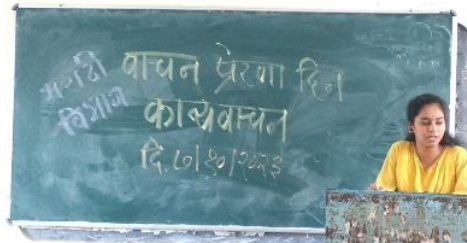 मराठी
विभाग
वाचन प्रेरणा दिन
काव्यवाचन
दि. ७/१०/२०२३